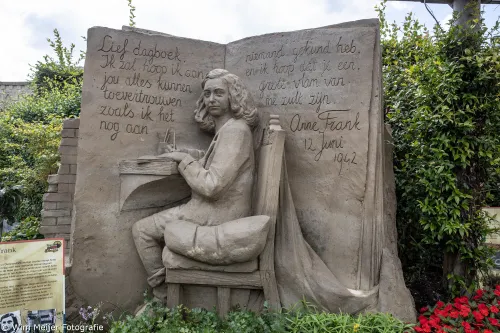 Lief dagboek,
Ik zal hoop ik aan
jou alles kunnen
toevertrouwen
zoals ik het
nog aan
niemand gekund heb,
en ik hoop dat je een
grote steun van
me zult zijn.
Anne Frank
12 Juni
1942
rank
© Wim Meijer Fotografie